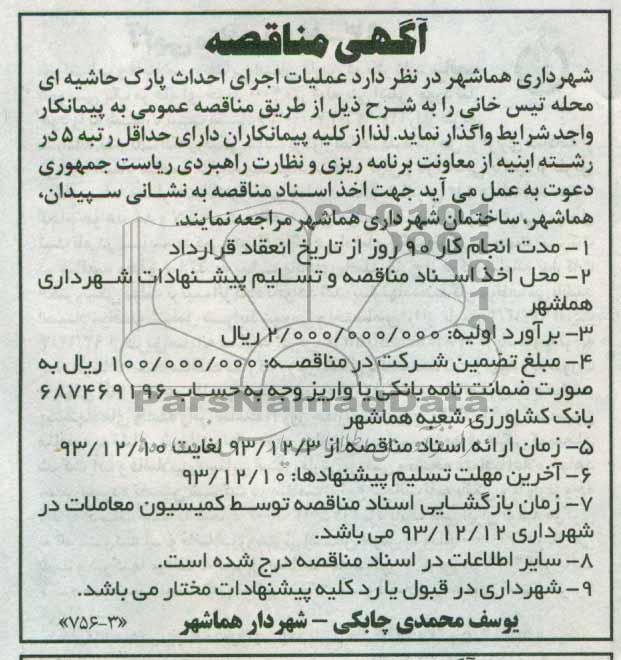 آگهی مناقصه
شهرداری هماشهر در نظر دارد عملیات اجرای احداث پارک حاشیه ای
محله تیس خانی را به شرح ذیل از طریق مناقصه عمومی به پیمانکار
واجد شرایط واگذار نماید. لذا از کلیه پیمانکاران دارای حداقل رتبه ۵ در
رشته ابنیه از معاونت برنامه ریزی و نظارت راهبردی ریاست جمهوری
دعوت به عمل می آید جهت اخذ اسناد مناقصه به نشانی سپیدان،
هماشهر، ساختمان شهرداری هماشهر مراجعه نمایند.
۱- مدت انجام کار ۹۰ روز از تاریخ انعقاد قرارداد
۲- محل اخذ اسناد مناقصه و تسلیم پیشنهادات شهرداری
هماشهر
۳- برآورد اولیه: ۲/۰۰۰/۰۰۰/۰۰۰ ریال
۴- مبلغ تضمین شرکت در مناقصه: ۱۰۰/۰۰۰/۰۰۰ ریال به
صورت ضمانت نامه بانکی یا واریز وجه به حساب ۶۸۷۴۶۹۱۹۶
بانک کشاورزی شعبه هماشهر
۵- زمان ارائه اسناد مناقصه از ۹۳/۱۲/۳ لغایت ۹۳/۱۲/۱۰
۶- آخرین مهلت تسلیم پیشنهادها: ۹۳/۱۲/۱۰
۷- زمان بازگشایی اسناد مناقصه توسط کمیسیون معاملات در
شهرداری ۹۳/۱۲/۱۲ می باشد.
۸- سایر اطلاعات در اسناد مناقصه درج شده است.
۹- شهرداری در قبول یا رد کلیه پیشنهادات مختار می باشد.
یوسف محمدی چابکی - شهردار هماشهر
«۷۵۶-۳»
ParsNamadData